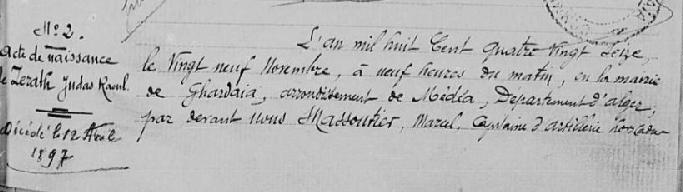 N° 2.
Acte de naissance
de Zerath Judas Raoul.
Décédé le 12
1897
L'an mil huit Cent quatre vingt seize,
le Vingt neuf Novembre, à neuf heures du matin, en la mairie
de Ghardaïa, arrondissement de Médéa, Département d'alger,
par devant nous Massoutier, Marcel, Capitaine d'artillerie hors cadre